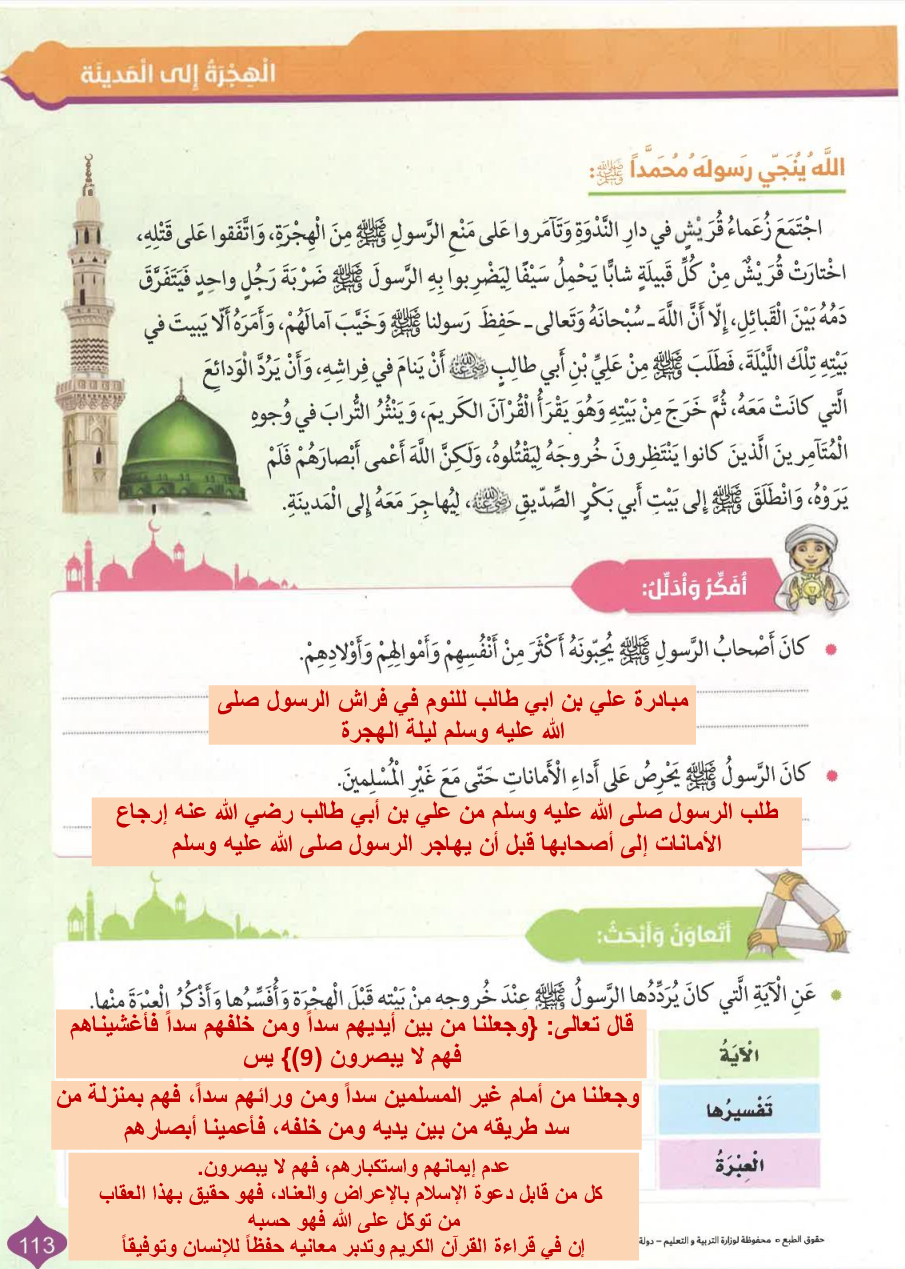 الْهِجْرَةُ إِلى الْمَدينَة
اللَّهُ يُنَجّي رَسولَهُ مُحَمَّداً ﷺ:
اجْتَمَعَ زُعَماءُ قُرَيْشٍ في دارِ النَّدْوَةِ وَتَآمَروا عَلى مَنْعِ الرَّسولِ ﷺ مِنَ الْهِجْرَةِ، وَاتَّفَقوا عَلى قَتْلِهِ،
اخْتارَتْ قُرَيْشٌ مِنْ كُلِّ قَبيلَةٍ شابًّا يَحْمِلُ سَيْفًا لِيَضْرِبوا بِهِ الرَّسولَ ﷺ ضَرْبَةَ رَجُلٍ واحِدٍ فَيَتَفَرَّقَ
دَمُهُ بَيْنَ الْقَبائِلِ، إِلّا أَنَّ اللَّهَ - سُبْحانَهُ وَتَعالى - حَفِظَ رَسولَنا ﷺ وَخَيَّبَ آمالَهُمْ، وَأَمَرَهُ أَلّا يَبيتَ في
بَيْتِهِ تِلْكَ اللَّيْلَةَ، فَطَلَبَ ﷺ مِنْ عَلِيِّ بْنِ أَبي طالِبٍ رضي الله عنه أَنْ يَنامَ في فِراشِهِ، وَأَنْ يَرُدَّ الْوَدائِعَ
الَّتي كانَتْ مَعَهُ، ثُمَّ خَرَجَ مِنْ بَيْتِهِ وَهُوَ يَقْرَأُ الْقُرْآنَ الْكَريمَ، وَيَنْثُرُ التُّرابَ في وُجوهِ
الْمُتَآمِرينَ الَّذينَ كانوا يَنْتَظِرونَ خُروجَهُ لِيَقْتُلوهُ، وَلَكِنَّ اللَّهَ أَعْمى أَبْصارَهُمْ فَلَمْ
يَرَوْهُ، وَانْطَلَقَ ﷺ إِلى بَيْتِ أَبي بَكْرٍ الصِّدّيقِ رضي الله عنه، لِيُهاجِرَ مَعَهُ إِلى الْمَدينَةِ.
أُفَكِّرُ وَأُدَلِّلُ:
• كانَ أَصْحابُ الرَّسولِ ﷺ يُحِبّونَهُ أَكْثَرَ مِنْ أَنْفُسِهِمْ وَأَمْوالِهِمْ وَأَوْلادِهِمْ.
مبادرة علي بن ابي طالب للنوم في فراش الرسول صلى
الله عليه وسلم ليلة الهجرة
• كانَ الرَّسولُ ﷺ يَحْرِصُ عَلى أَداءِ الْأَماناتِ حَتّى مَعَ غَيْرِ الْمُسْلِمينَ.
طلب الرسول صلى الله عليه وسلم من علي بن أبي طالب رضي الله عنه إرجاع
الأمانات إلى أصحابها قبل أن يهاجر الرسول صلى الله عليه وسلم
أَتَعاوَنُ وَأَبْحَثُ:
• عَنِ الْآيَةِ الَّتي كانَ يُرَدِّدُها الرَّسولُ ﷺ عِنْدَ خُروجِهِ مِنْ بَيْتِهِ قَبْلَ الْهِجْرَةِ وَأُفَسِّرُها وَأَذْكُرُ الْعِبْرَةَ مِنْها.
الْآيَةُ
قال تعالى: {وجعلنا من بين أيديهم سداً ومن خلفهم سداً فأغشيناهم
فهم لا يبصرون (9)} يس
تَفْسيرُها
وجعلنا من أمام غير المسلمين سداً ومن ورائهم سداً، فهم بمنزلة من
سد طريقه من بين يديه ومن خلفه، فأعمينا أبصارهم
الْعِبْرَةُ
عدم إيمانهم واستكبارهم، فهم لا يبصرون.
كل من قابل دعوة الإسلام بالإعراض والعناد، فهو حقيق بهذا العقاب
من توكل على الله فهو حسبه
إن في قراءة القرآن الكريم وتدبر معانيه حفظاً للإنسان وتوفيقاً
حقوق الطبع © محفوظة لوزارة التربية و التعليم – دولة
113